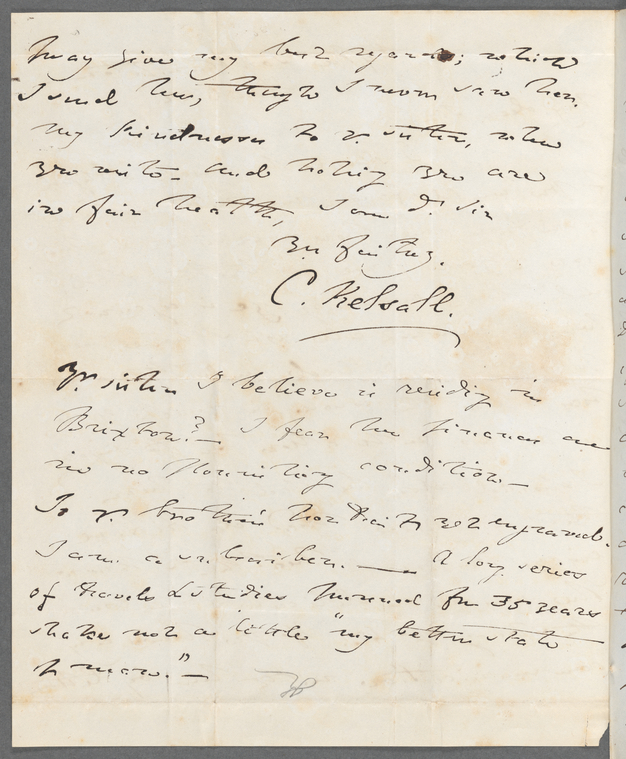 may give my best regards; which
I send her, though I never saw her.
my kindness to yr. sister, when
you write – and hoping you are
in fair health, I am dr. sir
yrs faithy.
C. Kelsall.
Yr. sister I believe is residg in
Brixton? – I fear her finances are
in no flourishing condition. –
Is yr. brother's portrait yet engraved.
I am a subscriber. — A long series
of travels & studies pursued for 35 years
shakes not a little "my better state
of man." –